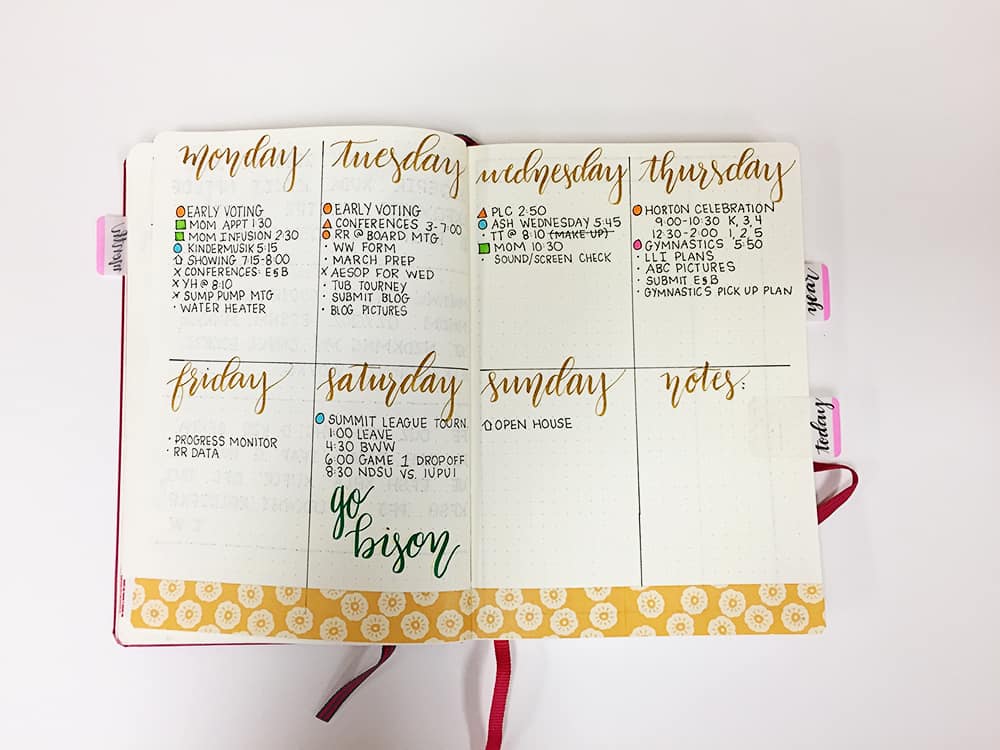 monday
EARLY VOTING
MOM APPT 1:30
MOM INFUSION 2:30
KINDERMUSIK 5:15
SHOWING 7:15-8:00
x CONFERENCES: E&B
x YH @ 8:10
x SUMP PUMP MTG
· WATER HEATER
tuesday
EARLY VOTING
CONFERENCES 3-7:00
RR @ BOARD MTG
· WW FORM
· MARCH PREP
x AESOP FOR WED
· TUB TOURNEY
· SUBMIT BLOG
· BLOG PICTURES
wednesday
PLC 2:50
ASH WEDNESDAY 5:45
· TT @ 8:10 (MAKE UP)
MOM 10:30
· SOUND/SCREEN CHECK
thursday
HORTON CELEBRATION
9:00-10:30 K, 3, 4
12:30-2:00 1, 2, 5
GYMNASTICS 5:50
· LLI PLANS
· ABC PICTURES
· SUBMIT E&B
· GYMNASTICS PICK UP PLAN
friday
· PROGRESS MONITOR
· RR DATA
saturday
SUMMIT LEAGUE TOURN.
1:00 LEAVE
4:30 BWW
6:00 GAME 1 DROP OFF
8:30 NDSU VS. IUPUI
go
bison
sunday
OPEN HOUSE
notes:
year
today